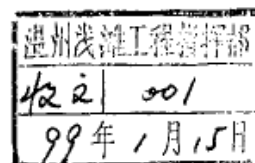 温州浅滩工程指挥部
收文 001
99年1月15日